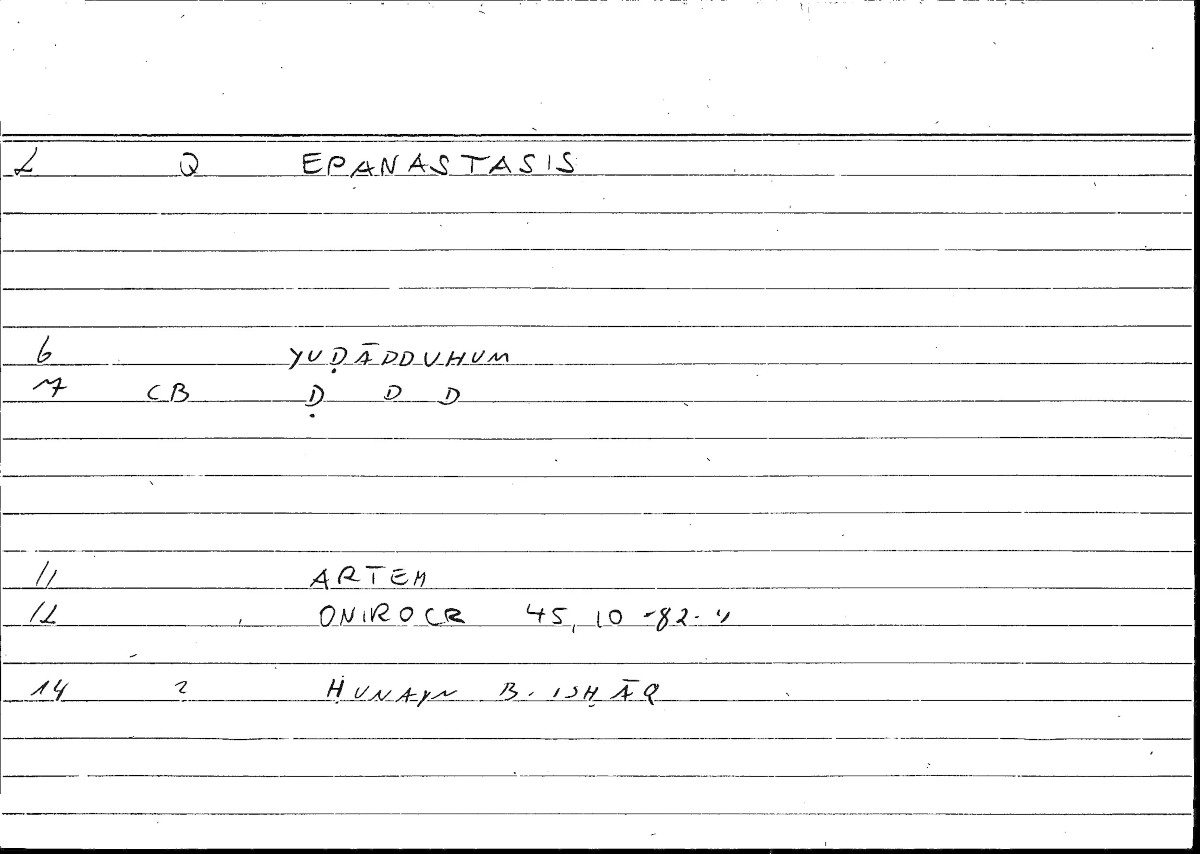 2 Q EPANASTASIS
6 YUḌĀDDUHUM
7 CB Ḍ D D
11 ARTEM
12 ONIROCR 45, 10 -82.
14 2 ḤUNAYN B. ISḤĀQ